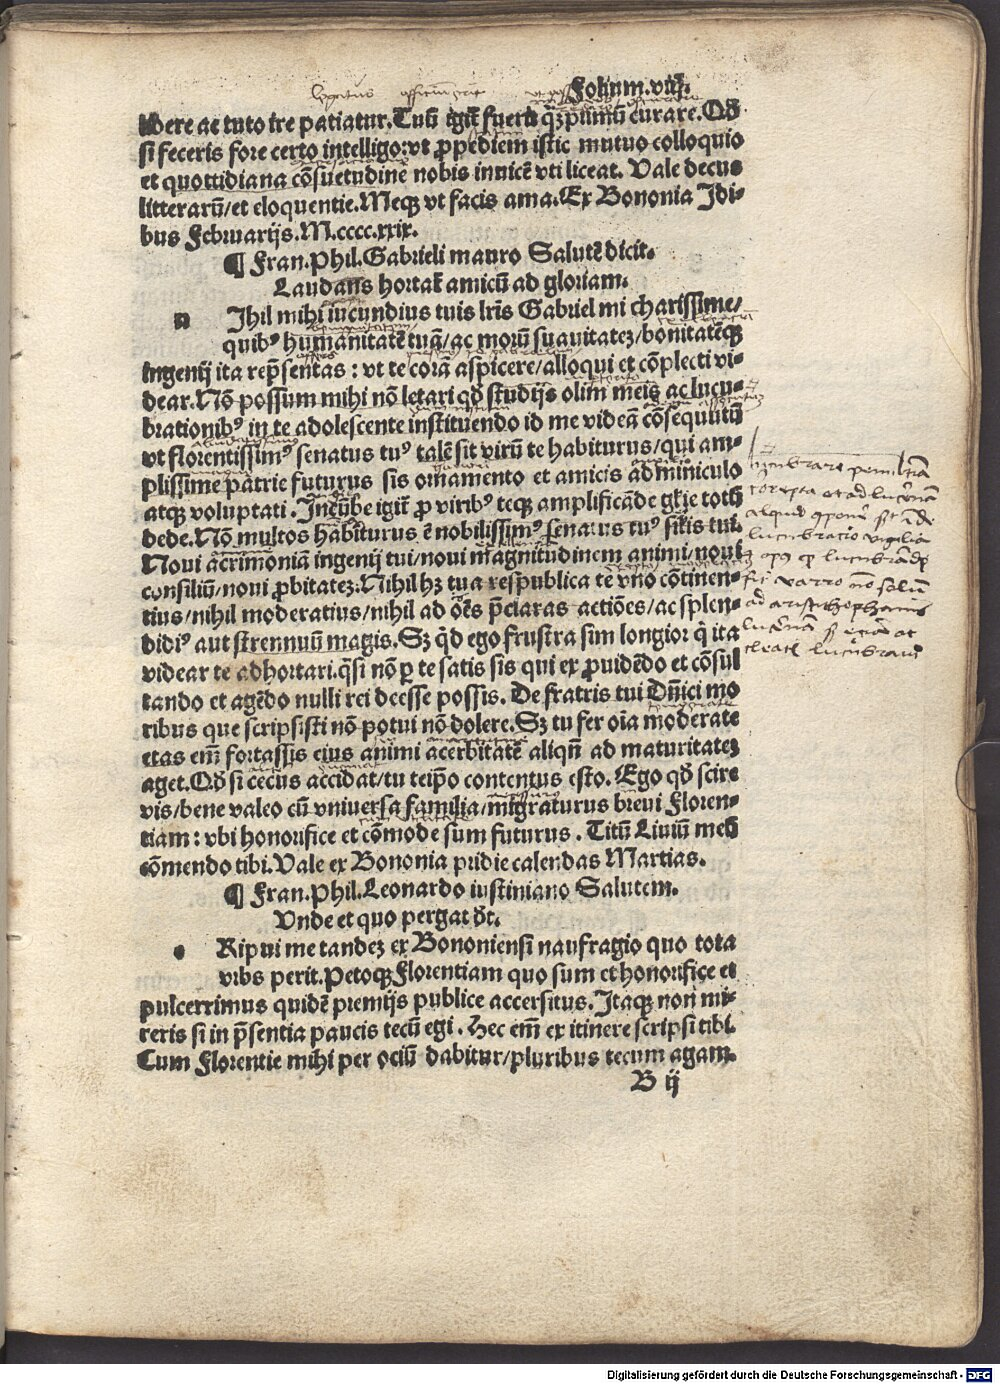 Folium.viij.
libere ac tuto ire patiatur. Tuū igit̄ fuerit q̄ꝫ primū curare. Qđ
si feceris fore certo intelligo: vt ꝓpediem istic mutuo colloquio
et quottidiana cōsuetudine nobis inuicē vti liceat. Vale decus
litterarū/ et eloquentie. Meqꝫ vt facis ama. Ex Bononia Idi-
bus Februarijs. M.cccc.xxix.
¶ Fran. Phil. Gabrieli mauro Salutē dicit.
Laudans hortat̄ amicū ad gloriam.
n Ihil mihi iucundius tuis lr̄is Gabriel mi charissime/
quibꝰ humanitatē tuā/ ac morū suauitateꝫ/ bonitatēqꝫ
ingenij ita rep̄sentas: vt te corā aspicere/ alloqui et cōplecti vi-
dear. Nō possum mihi nō letari qđ studijs olim meis ac lucu-
brationibꝰ in te adolescente instituendo id me videā cōsequutū
vt florentissimꝰ senatus tuꝰ talē sit virū te habiturus/ qui am-
plissime patrie futurus sis ornamento et amicis adminiculo
atqꝫ voluptati. Incūbe igit̄ ꝓ viribꝰ teqꝫ amplificāde gl̄ie totū
dede. Nō multos habiturus ē nobilissimꝰ senatus tuꝰ sil̄es tui.
Noui acrimoniā ingenij tui/ noui magnitudinem animi/ noui
consiliū/ noui ꝓbitateꝫ. Nihil hꝫ tua respublica te vno cōtinen-
tius/ nihil moderatius/ nihil ad oēs p̄claras actiōes/ ac splen-
didiꝰ aut strennuū magis. Sꝫ qđ ego frustra sim longior q̄ ita
videar te adhortari. q̄si nō ꝑ te satis sis qui ex ꝓuidēdo et cōsul
tando et agēdo nulli rei deesse possis. De fratris tui Dn̄ici mo
ribus que scripsisti nō potui nō dolere. Sꝫ tu fer oīa moderate
etas em̄ fortassis eius animi acerbitatē aliqn̄ ad maturitateꝫ
aget. Qđ si cecus accidat/ tu teip̄o contentus esto. Ego qđ scire
vis/ bene valeo cū vniuersa familia/ migraturus breui Floren-
tiam: vbi honorifice et cōmode sum futurus. Titū Liuiū meū
cōmendo tibi. Vale ex Bononia pridie calendas Martias.
¶ Fran. Phil. Leonardo iustiniano Salutem.
Unde et quo pergat dt.
e Ripui me tandeꝫ ex Bononiensi naufragio quo tota
vrbs perit. Petoqꝫ Florentiam quo sum et honorifice et
pulcerrimus quidē premijs publice accersitus. Itaqꝫ non mi-
reris si in p̄sentia paucis tecū egi. Hec em̄ ex itinere scripsi tibi.
Cum Florentie mihi per ociū dabitur/ pluribus tecum agam.
B ij
lucubratio vigilia
Digitalisierung gefördert durch die Deutsche Forschungsgemeinschaft - DFG